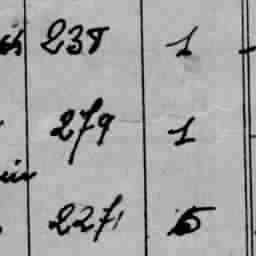 238 1
279 1
227 5